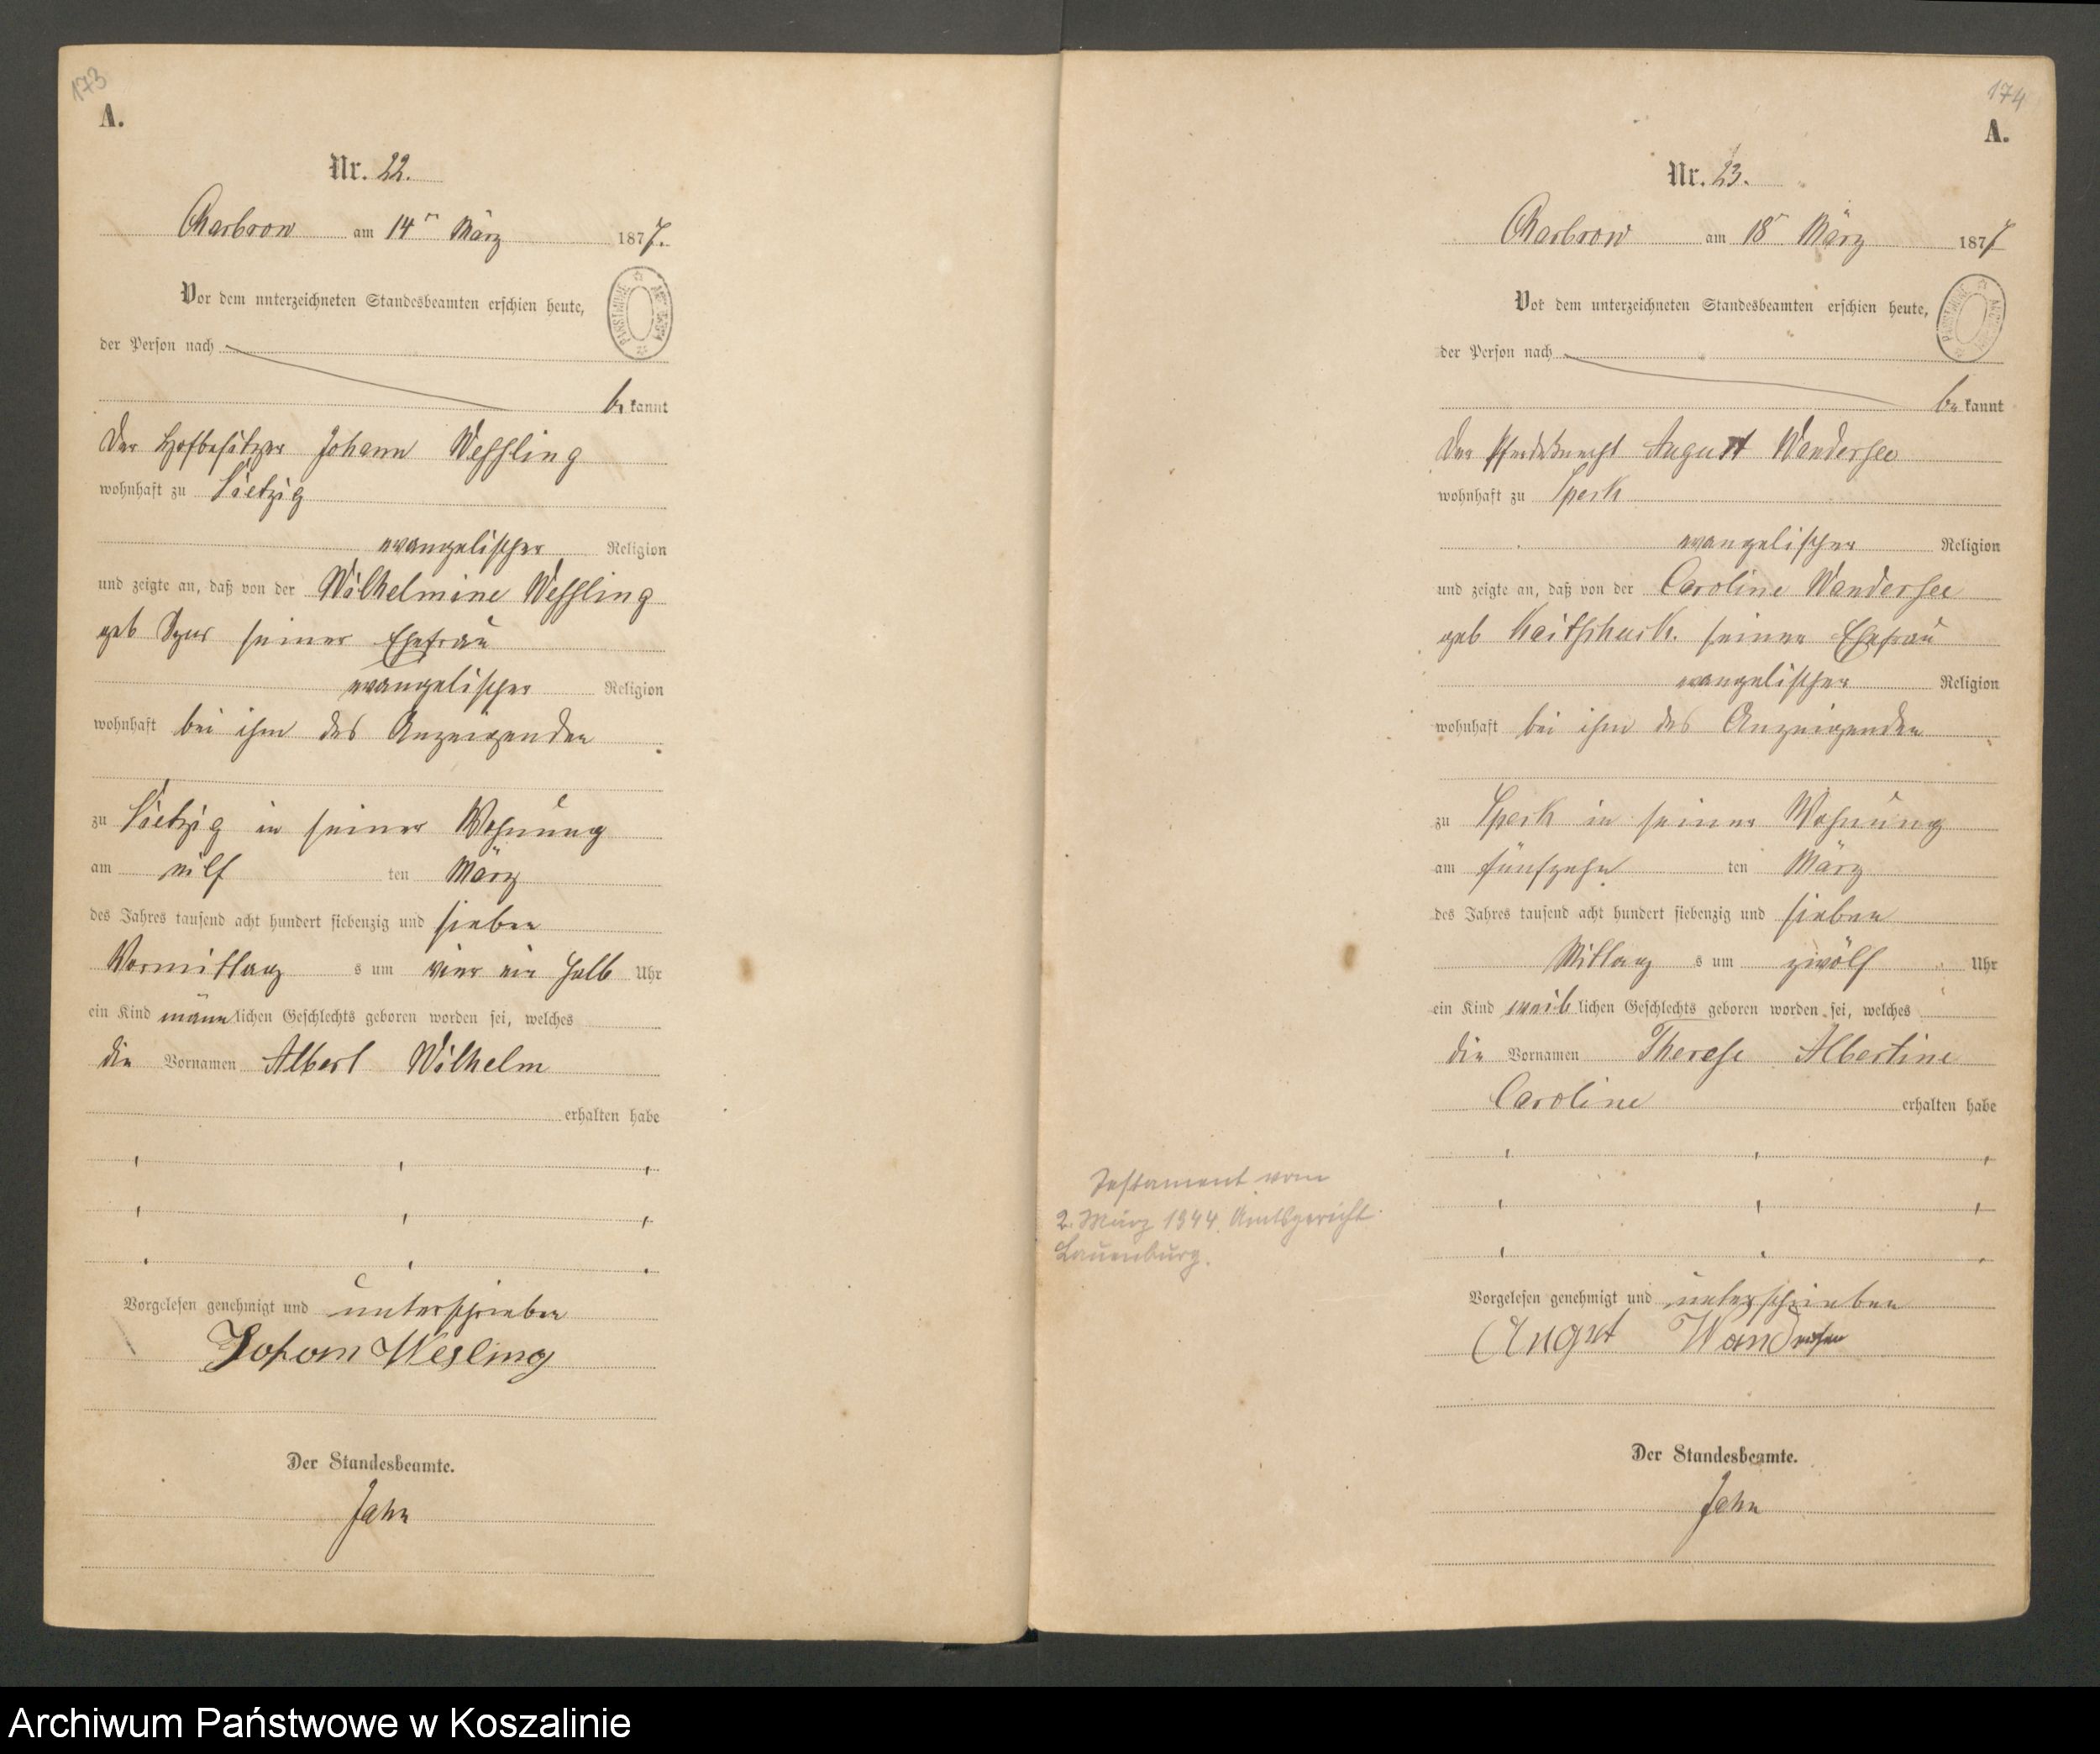 173
A.
Nr. 22.
Charbrow am 14ⁿ März 1877.
Vor dem unterzeichneten Standesbeamten erschien heute,
der Person nach
be kannt
Der Hofbesitzer Johann Wessling
wohnhaft zu Vietzig
evangelischer Religion
und zeigte an, daß von der Wilhelmine Wessling
geb seiner Ehefrau
evangelischer Religion
wohnhaft bei ihm des Anzeigenden
zu Vietzig in seiner Wohnung
am eilf ten März
des Jahres tausend acht hundert siebenzig und sieben
Vormittag s um vier ein halb Uhr
ein Kind männ lichen Geschlechts geboren worden sei, welches
die Vornamen Albert Wilhelm
erhalten habe
Vorgelesen genehmigt und unterschrieben
Johann Wesling
Der Standesbeamte.
Jahn
174
A.
Nr. 23.
Charbrow am 18ⁿ März 1877
Vor dem unterzeichneten Standesbeamten erschien heute,
der Person nach
be kannt
Der Pferdeknecht August Wandersee
wohnhaft zu Speck
evangelischer Religion
und zeigte an, daß von der Caroline Wandersee
geb seiner Ehefrau
evangelischer Religion
wohnhaft bei ihm des Anzeigenden
zu Speck in seiner Wohnung
am fünfzehn ten März
des Jahres tausend acht hundert siebenzig und sieben
Mittag s um zwölf Uhr
ein Kind weib lichen Geschlechts geboren worden sei, welches
die Vornamen Therese Albertine
Caroline erhalten habe
Testament vom
2. März 1944. Amtsgericht
Lauenburg.
Vorgelesen genehmigt und unterschrieben
August
Der Standesbeamte.
Jahn
Archiwum Państwowe w Koszalinie